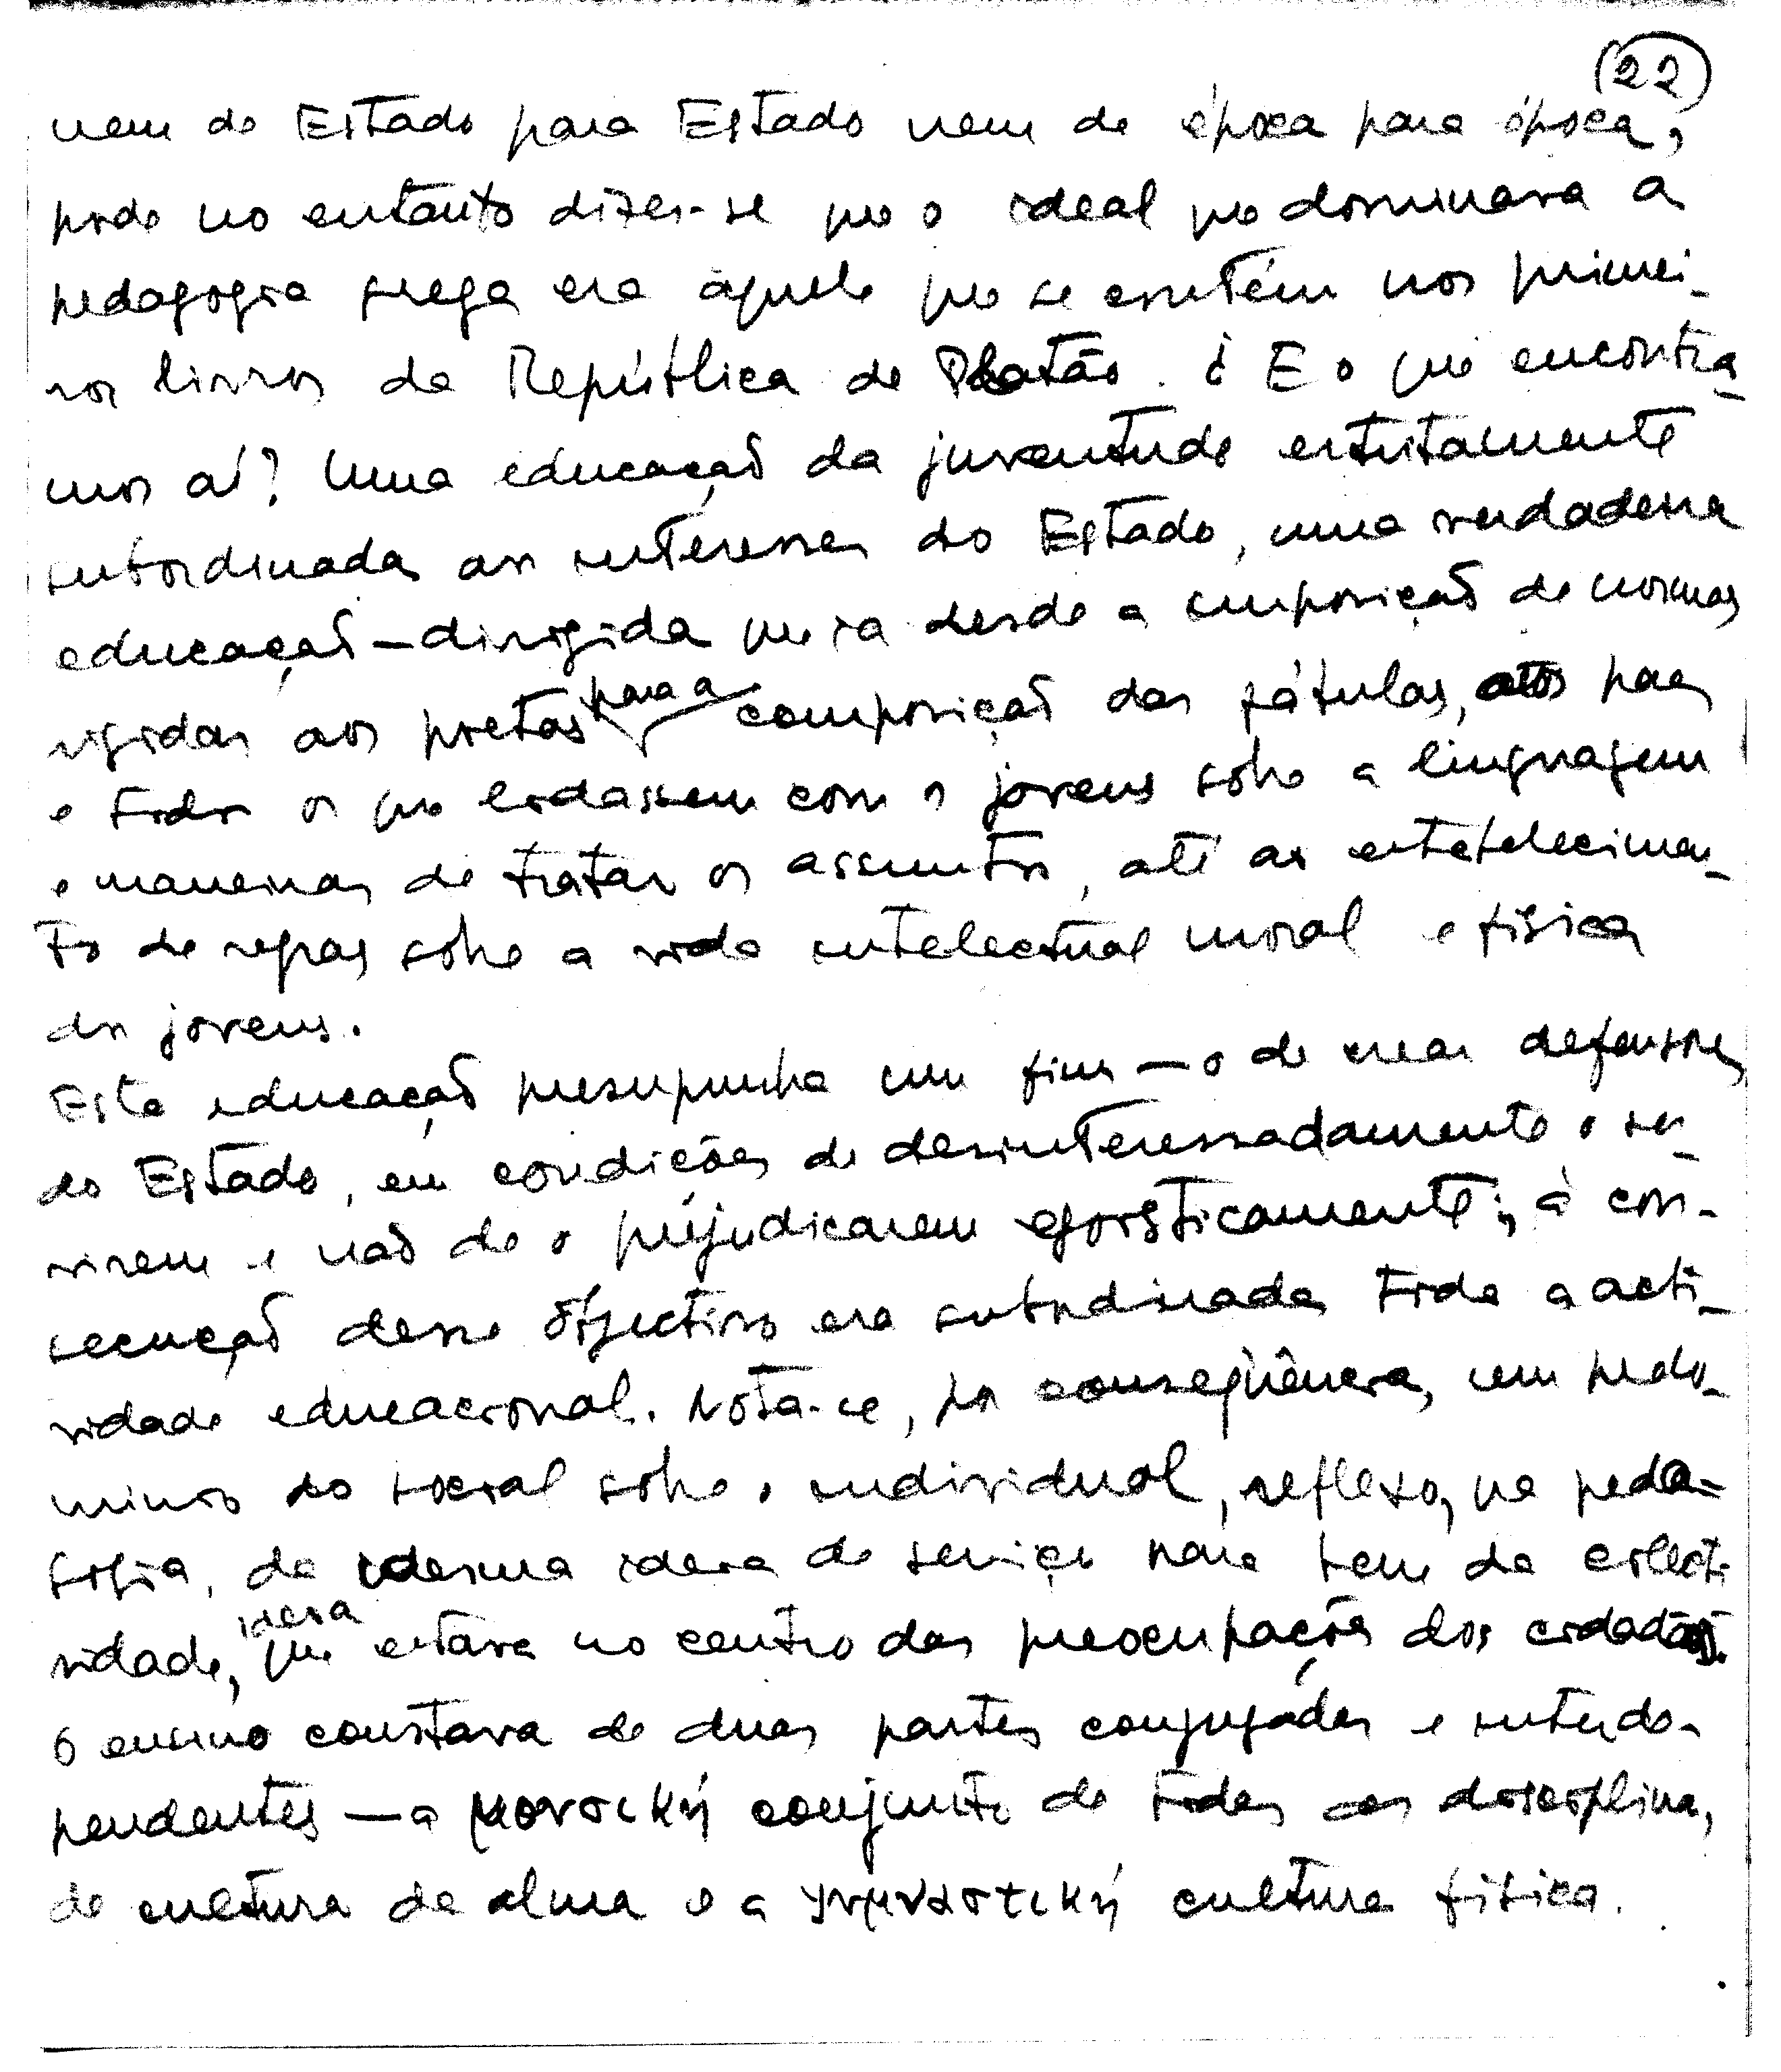 (22)
nem de Estado para Estado nem de época para época,
pode no entanto dizer-se que o ideal que dominava a
pedagogia grega era àquele que se contém nos primei-
ros livros da República de Platão. E o que encontra-
mos aí? Uma educação da juventude estritamente
subordinada aos interesses do Estado, uma verdadeira
educação—dirigida que ia desde a imposição de normas
rígidas aos poetas para a composição das fábulas, aos pais
e todos os que lidassem com os jovens sobre a linguagem
e maneiras de tratar os assuntos, até ao estabelecimen-
to de regras sobre a vida intelectual moral e física
dos jovens.
Esta educação pressupunha um fim — o de crear defensores
do Estado, em condições de desinteressadamente o ser-
virem e não de o prejudicarem egoìsticamente; à con-
secução desse objectivo era subordinada toda a acti-
vidade educacional. Nota-se, por conseqüência, um predo-
mínio do social sobre o individual, reflexo, na peda-
gogia, da mesma ideia de serviço para bem da colecti-
vidade, ideia que estava no centro das preocupações dos cidadãos.
O ensino constava de duas partes conjugadas e interde-
pendentes — a μουσική conjunto de todas as disciplinas,
de cultura da alma e a γυμναστική cultura física.